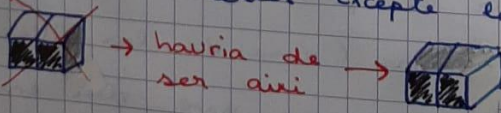 excepte e
→ hauria de →
ser aixi